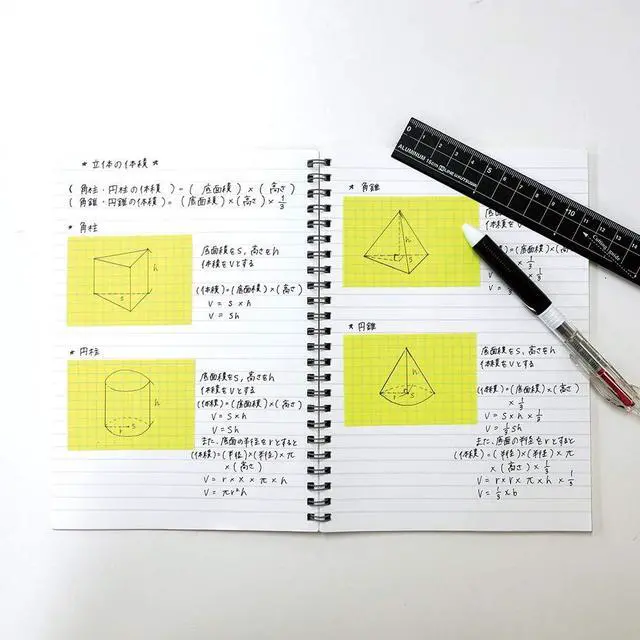 * 立体の体積 *
(角柱・円柱の体積)=(底面積)×(高さ)
(角錐・円錐の体積)=(底面積)×(高さ)×1/3
* 角柱
h
S
底面積をS,高さをh
体積をVとする
(体積)=(底面積)×(高さ)
V = S×h
V = Sh
* 円柱
h
r
S
底面積をS,高さをh
体積をVとする
(体積)=(底面積)×(高さ)
V = S×h
V = Sh
また、底面の半径をrとすると
(体積)=(半径)×(半径)×π
×(高さ)
V = r × r × π × h
V = πr²h
* 角錐
h
S
底面積
体積をV
)=(底面積)×(高さ)
× 1/3
× 1/3
V =
* 円錐
h
r
S
底面積をS,高さをh
体積をVとする
(体積)=(底面積)×(高さ)
× 1/3
V = S×h×1/3
V = 1/3Sh
また、底面の半径をrとすると
(体積)=(半径)×(半径)×π
×(高さ)×1/3
V = r×r×π×h×1/3
V = 1/3
0 1 2 3 4 5 6 7 8 9 10 11 12 13
ALUMINUM 15cm
Cutting Inside